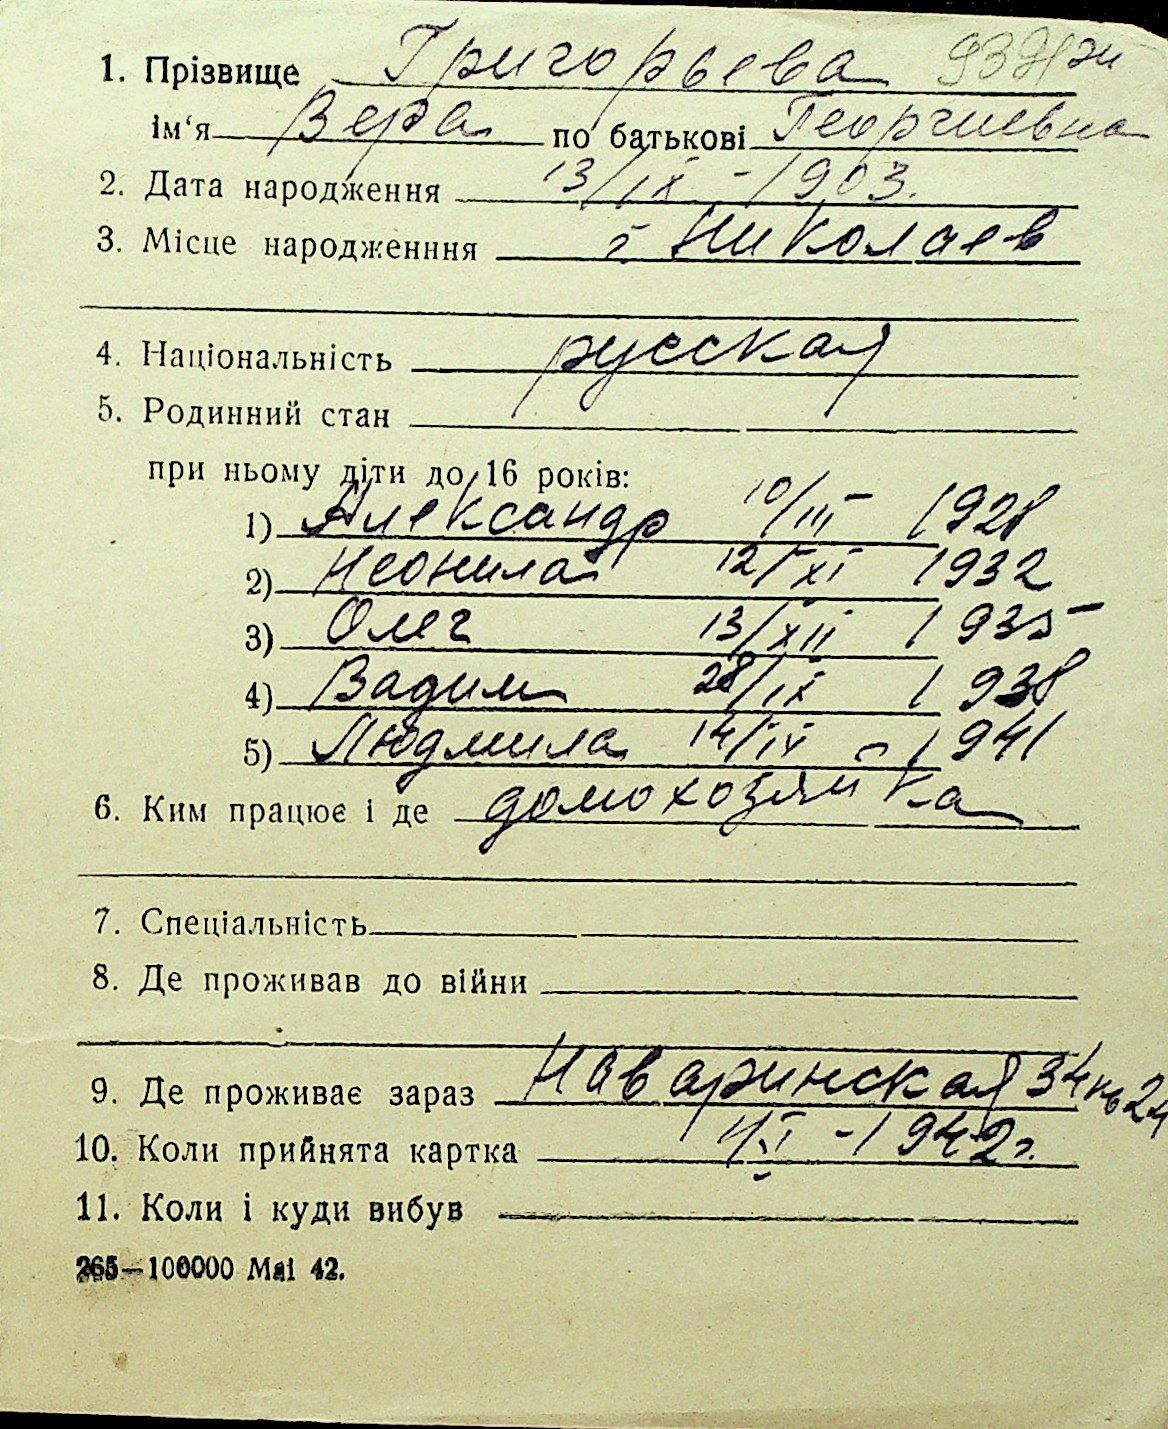 1. Прізвище Григорьева
ім‘я Вера по батькові Георгиевна
2. Дата народження 13/IX - 1903.
3. Місце народженння г. Николаев
4. Національність русская
5. Родинний стан
при ньому діти до 16 років:
1) Александр 10/III 1928
2) Неонила 12/XI 1932
3) Олег 13/XII 1935
4) Вадим 28/IX 1938
5) Людмила 14/IX - 1941
6. Ким працює і де домохозяйка
7. Спеціальність
8. Де проживав до війни
9. Де проживає зараз Наваринская 34 кв 24
10. Коли прийнята картка -1942г.
11. Коли і куди вибув
265—100000 Маі 42.